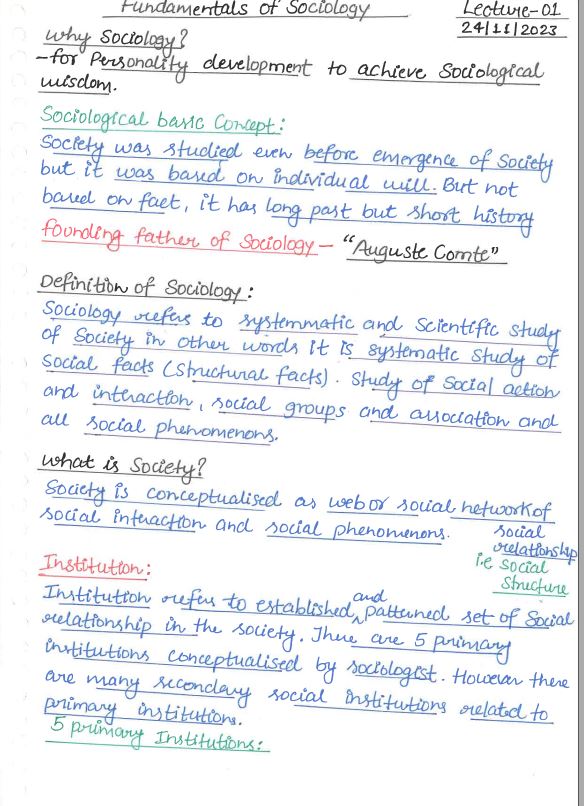 Fundamentals of Sociology
Lecture-01
24/11/2023
why Sociology?
-for Personality development to achieve Sociological
wisdom.
Sociological basic Concept:
Society was studied even before emergence of Society
but it was based on individual will. But not
based on fact, it has long past but short history
founding father of Sociology - "Auguste Comte"
Definition of Sociology:
Sociology refers to systemmatic and Scientific study
of Society in other words it is systematic study of
Social facts (Structural facts). Study of Social action
and interaction, social groups and association and
all social phenomenons.
what is Society?
Society is conceptualised as web or social network of
social interaction and social phenomenons.
social
relationship
i.e Social
Structure
Institution:
Institution refers to established, and patterned set of Social
relationship in the society. There are 5 primary
institutions conceptualised by sociologist. However there
are many secondary social institutions related to
primary institutions.
5 primary Institutions: